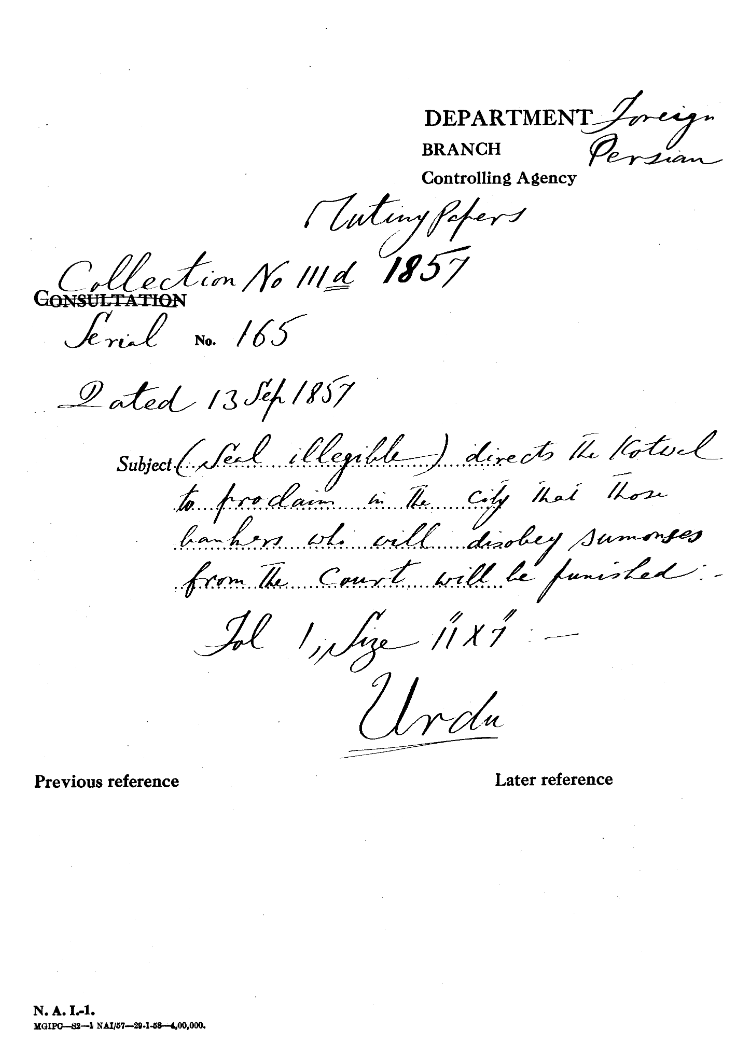 DEPARTMENT Foreign
BRANCH Persian
Controlling Agency
Mutiny Papers
Collection No III d 1857
CONSULTATION
Serial No. 165
Dated 13 Sep 1857
Subject (Seal illegible) directs the Kotwal
to proclaim in the city that those
bankers who will disobey sumonses
from the Court will be punished :-
Fol 1, Size 11" X 7" :—
Urdu
Previous reference Later reference
N. A. I.-1.
MGIPC—S2—1 NAI/57—29-1-58—4,00,000.